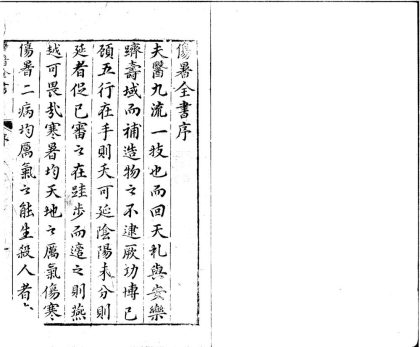 傷暑全書序
夫醫九流一技也而回天札與安樂
躋壽域而補造物之不逮厥功博已
顧五行在手則夭可延陰陽未分則
延者促已審之在跬步而謬之則燕
越可畏哉寒暑均天地之厲氣傷寒
傷暑二病均厲氣之能生殺人者